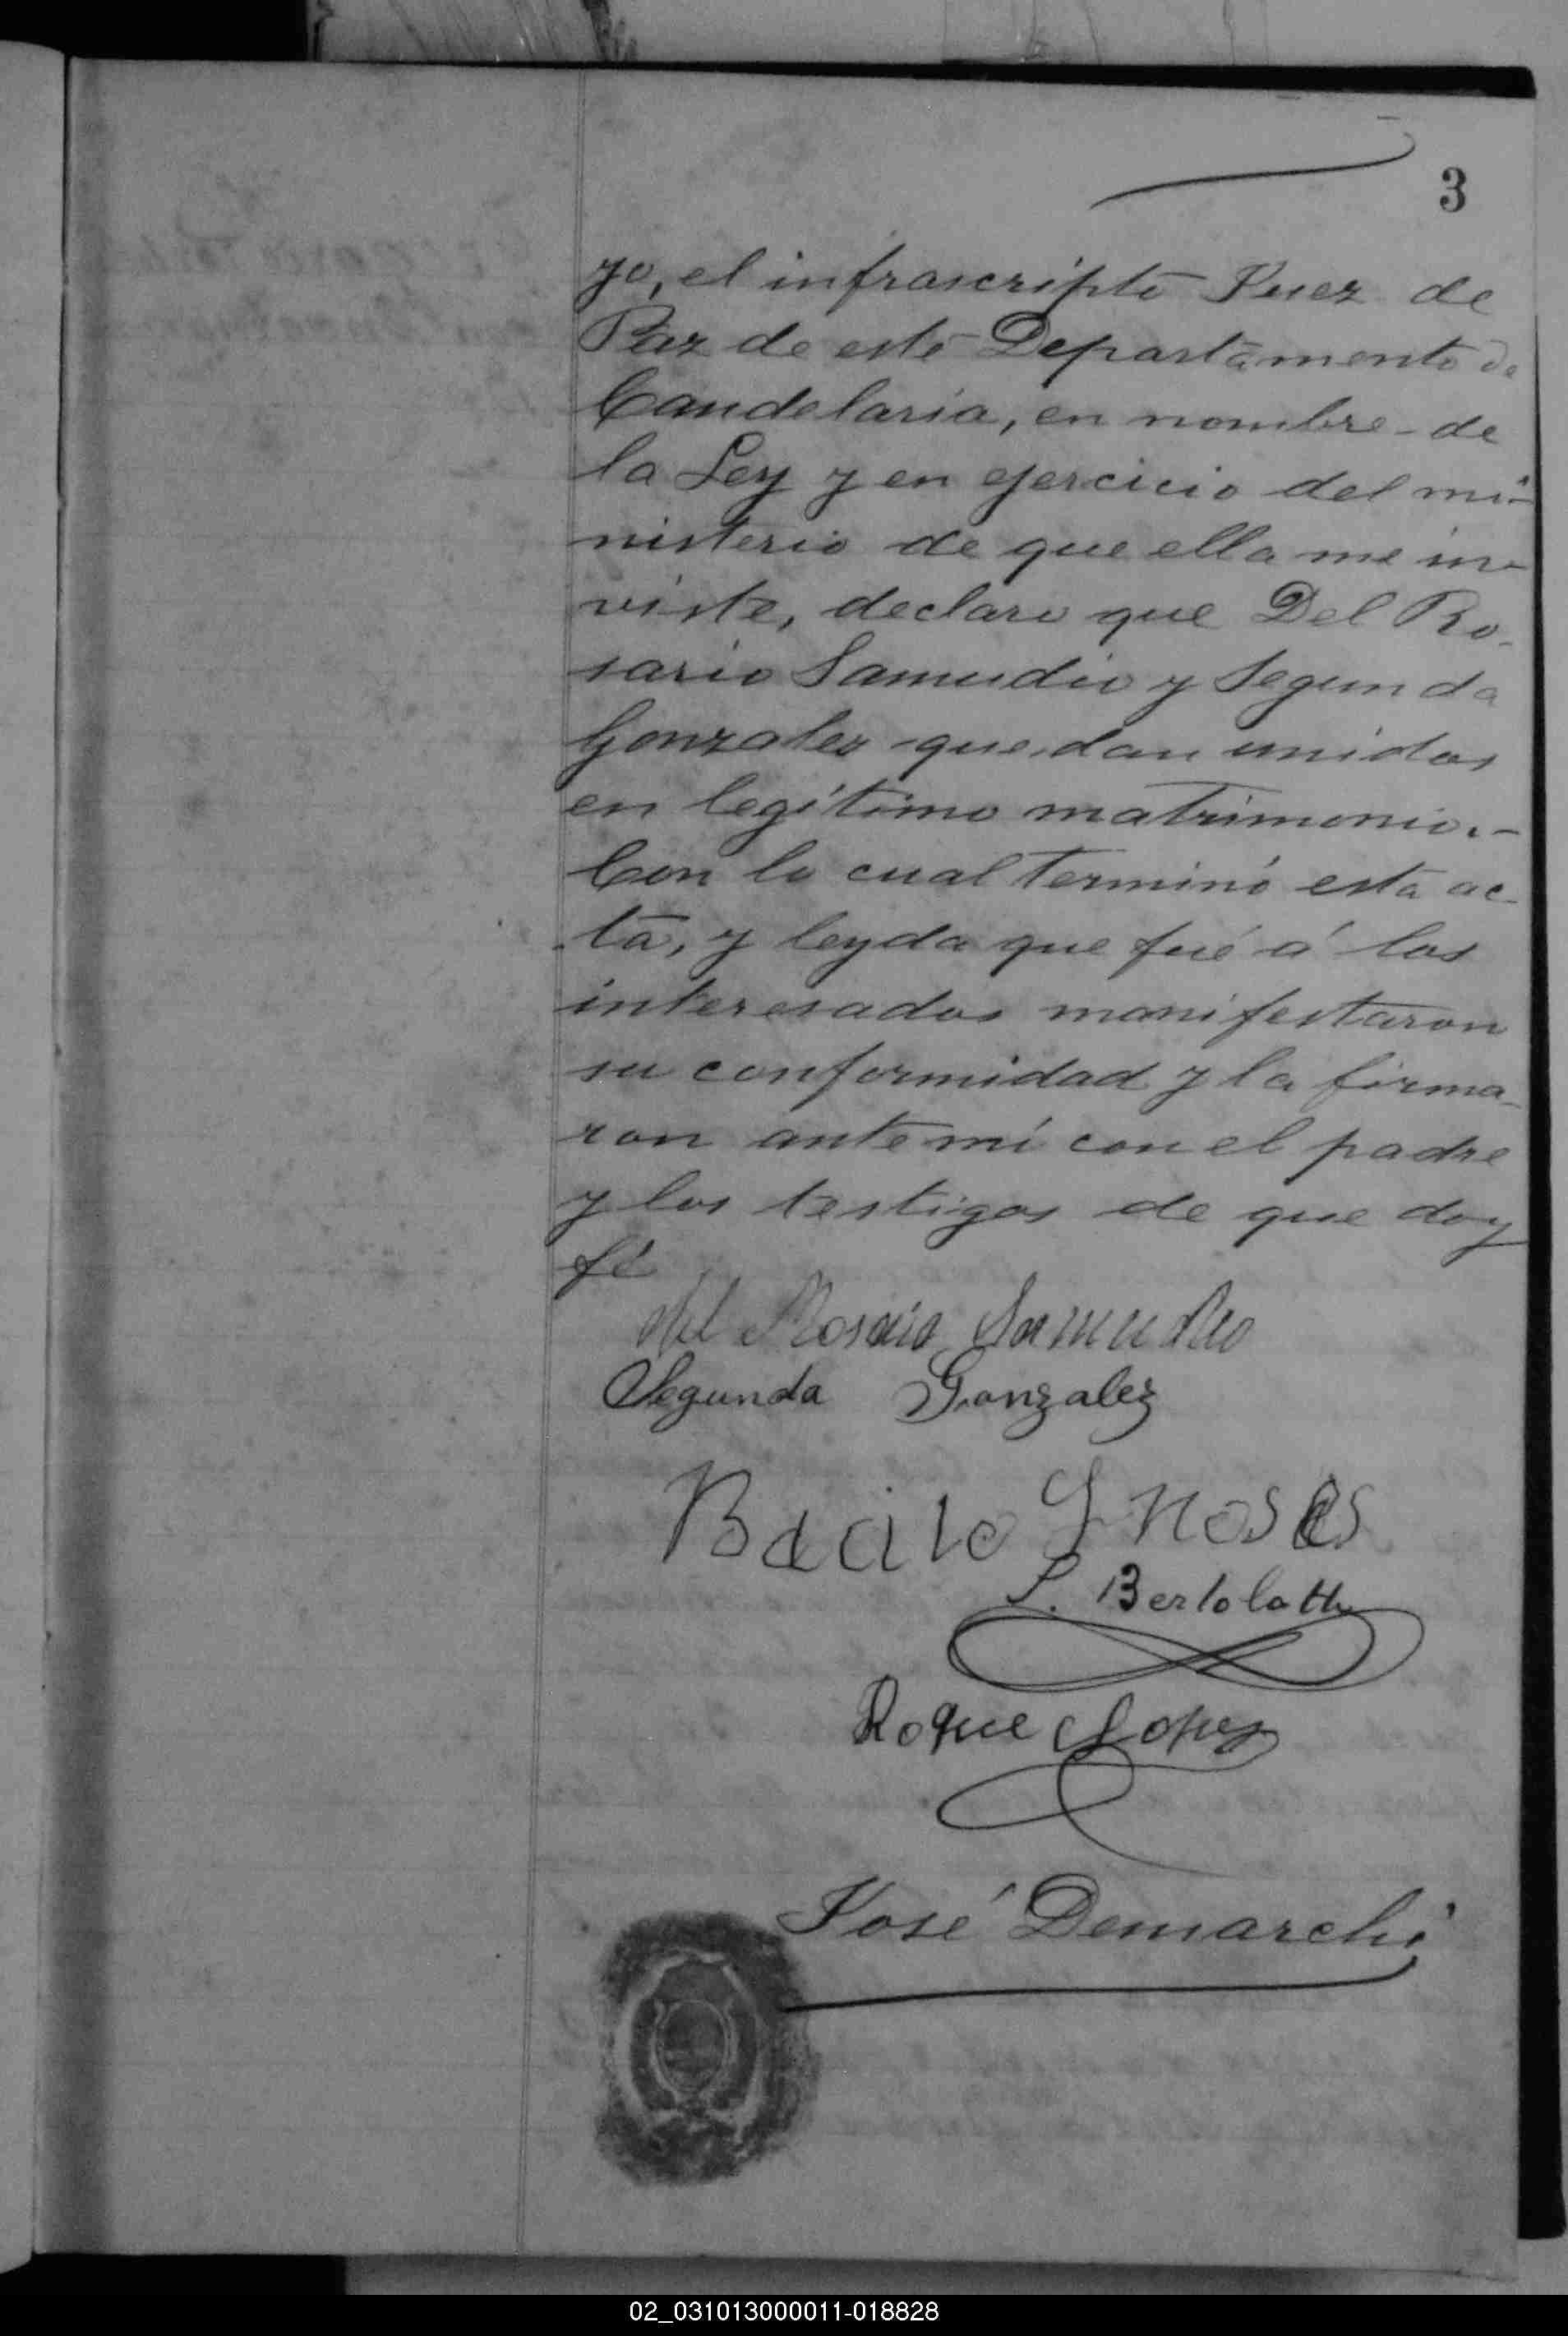 3
yo, el infrascripto Juez de
Paz de este Departamento de
Candelaria, en nombre de
la Ley y en ejercicio del mi-
nisterio de que ella me in-
viste, declaro que Del Ro-
sario Samudio y Segunda
Gonzalez quedan unidos
en legítimo matrimonio.-
Con lo cual terminó esta ac-
ta, y leyda que fué á los
interesados manifestaron
su conformidad y la firma-
ron ante mí con el padre
y los testigos de que doy
fé
del Rosario Samudio
Segunda Gonzalez
S. Bertolotti
Roque Lopez
José Demarchi
02_031013000011-018828